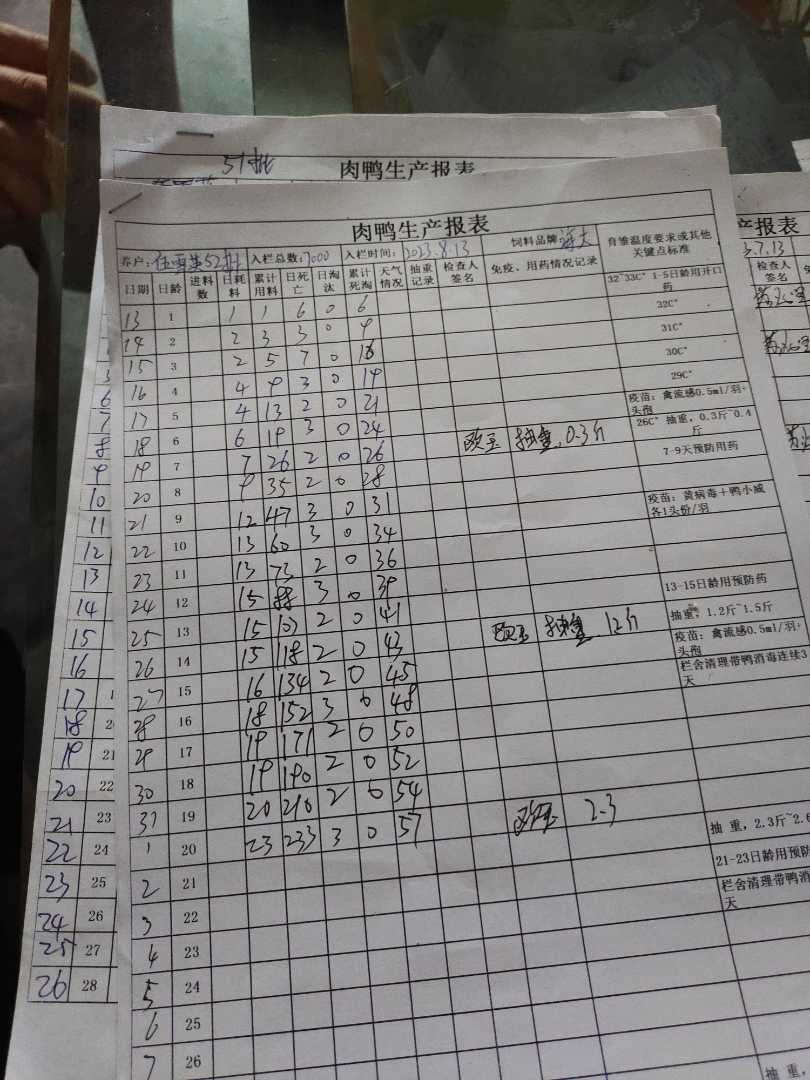 51批
肉鸭生产报表
肉鸭生产报表
养户: 52批 入栏总数:7000 入栏时间: 2023.8.13 饲料品牌 海大 育雏温度要求或其他关键点标准
日期 日龄 进料数 日耗料 累计用料 日死亡 日淘汰 累计死淘 天气情况 抽重记录 检查人签名 免疫、用药情况记录
32~33C° 1-5日龄用开口药
13 1 1 1 6 0 6 32C°
14 2 2 3 3 0 9 31C°
15 3 2 5 7 0 16 30C°
16 4 4 9 3 0 19 29C°
17 5 4 13 2 0 21 疫苗: 禽流感0.5ml/羽+头孢
18 6 6 19 3 0 24 抽重 0.3斤 26C° 抽重, 0.3斤~0.4斤
19 7 7 26 2 0 26 7-9天预防用药
20 8 9 35 2 0 28
21 9 12 47 3 0 31 疫苗: 黄病毒+鸭小威各1头份/羽
22 10 13 60 3 0 34
23 11 13 73 2 0 36
24 12 15 88 3 0 39 13-15日龄用预防药
25 13 15 103 2 0 41 抽重 1.2斤 抽重, 1.2斤~1.5斤
26 14 15 118 2 0 43 疫苗: 禽流感0.5ml/羽+头孢
27 15 16 134 2 0 45 栏舍清理带鸭消毒连续3天
28 16 18 152 3 0 48
29 17 19 171 2 0 50
30 18 19 190 2 0 52
31 19 20 210 2 0 54
1 20 23 233 3 0 57 2.3 抽 重, 2.3斤~2.6
2 21 21-23日龄用预防
3 22 栏舍清理带鸭消天
4 23
5 24
6 25
7 26
抽 重,
5
6
7
8
9
10
11
12
13
14
15
16
17
18 20
19 21
20 22
21 23
22 24
23 25
24 26
25 27
26 28
产报表
3.7.13
检查人签名